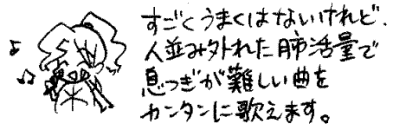 すごくうまくはないけれど、
人並み外れた肺活量で
息つぎが難しい曲を
カンタンに歌えます。